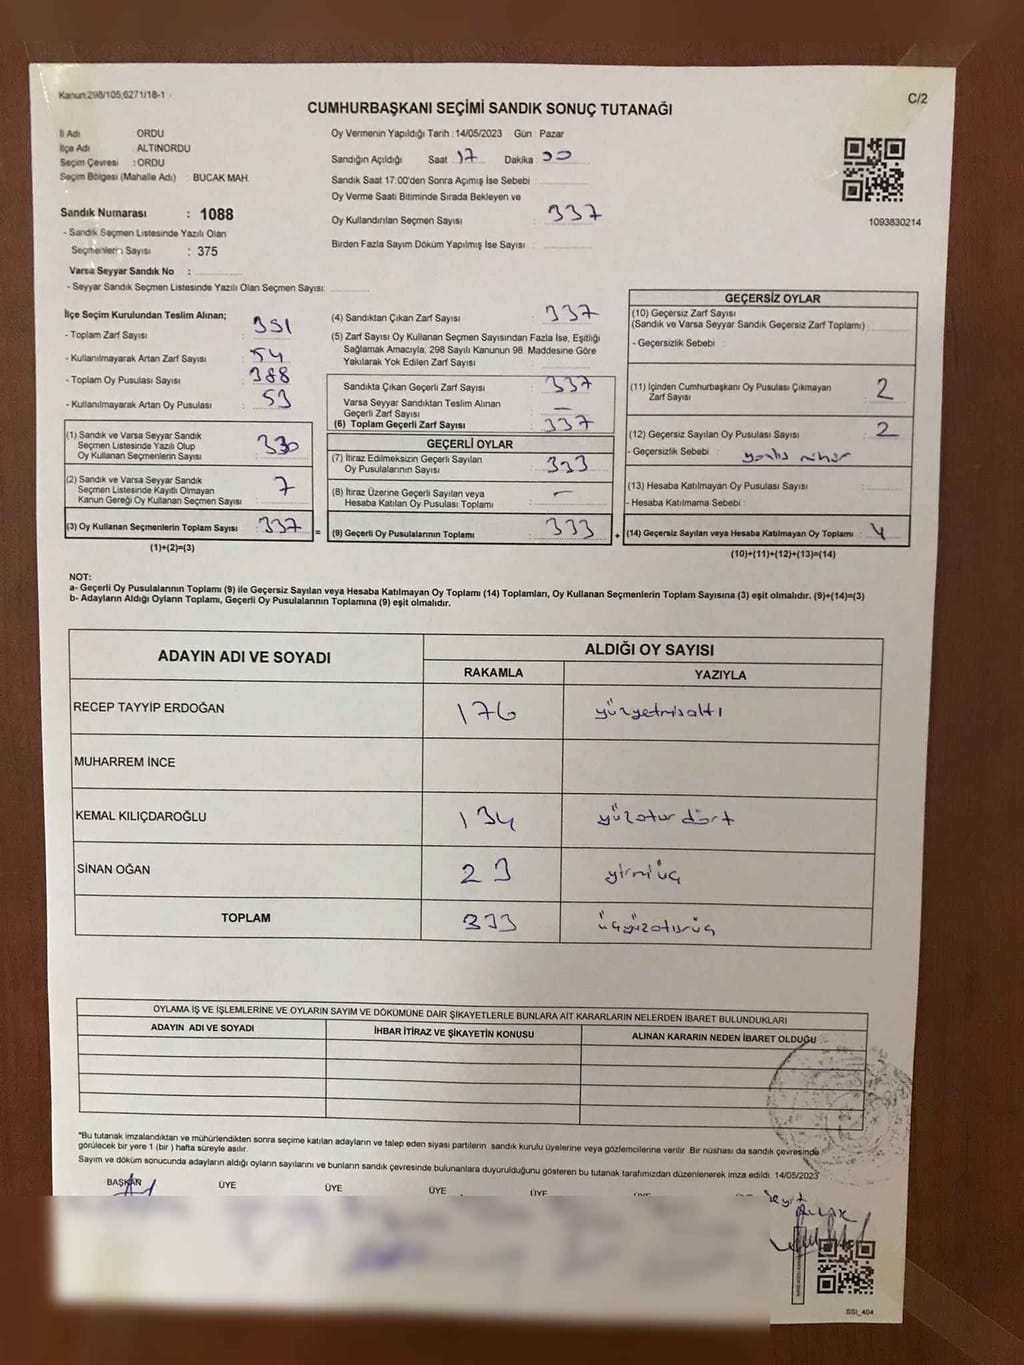 Kanun:298/105,6271/18-1
C/2
CUMHURBAŞKANI SEÇİMİ SANDIK SONUÇ TUTANAĞI
İl Adı ORDU
İlçe Adı ALTINORDU
Seçim Çevresi : ORDU
Seçim Bölgesi (Mahalle Adı) : BUCAK MAH.
Sandık Numarası : 1088
- Sandık Seçmen Listesinde Yazılı Olan
Seçmenlerin Sayısı : 375
Varsa Seyyar Sandık No :
- Seyyar Sandık Seçmen Listesinde Yazılı Olan Seçmen Sayısı:
Oy Vermenin Yapıldığı Tarih :14/05/2023 Gün : Pazar
Sandığın Açıldığı Saat 17 Dakika 00
Sandık Saat 17:00'den Sonra Açımış İse Sebebi
Oy Verme Saati Bitiminde Sırada Bekleyen ve
Oy Kullandırılan Seçmen Sayısı : 337
Birden Fazla Sayım Döküm Yapılmış İse Sayısı :
1093830214
İlçe Seçim Kurulundan Teslim Alınan;
- Toplam Zarf Sayısı : 391
- Kullanılmayarak Artan Zarf Sayısı : 54
- Toplam Oy Pusulası Sayısı : 388
- Kullanılmayarak Artan Oy Pusulası : 53
(1) Sandık ve Varsa Seyyar Sandık
Seçmen Listesinde Yazılı Olup
Oy Kullanan Seçmenlerin Sayısı : 330
(2) Sandık ve Varsa Seyyar Sandık
Seçmen Listesinde Kayıtlı Olmayan
Kanun Gereği Oy Kullanan Seçmen Sayısı : 7
(3) Oy Kullanan Seçmenlerin Toplam Sayısı : 337
(1)+(2)=(3)
(4) Sandıktan Çıkan Zarf Sayısı : 337
(5) Zarf Sayısı Oy Kullanan Seçmen Sayısından Fazla İse, Eşitliği
Sağlamak Amacıyla, 298 Sayılı Kanunun 98. Maddesine Göre
Yakılarak Yok Edilen Zarf Sayısı :
Sandıkta Çıkan Geçerli Zarf Sayısı : 337
Varsa Seyyar Sandıktan Teslim Alınan
Geçerli Zarf Sayısı : –
(6) Toplam Geçerli Zarf Sayısı : 337
GEÇERLİ OYLAR
(7) İtiraz Edilmeksizin Geçerli Sayılan
Oy Pusulalarının Sayısı : 333
(8) İtiraz Üzerine Geçerli Sayılan veya
Hesaba Katılan Oy Pusulası Toplamı : –
= (9) Geçerli Oy Pusulalarının Toplamı : 333
GEÇERSİZ OYLAR
(10) Geçersiz Zarf Sayısı
(Sandık ve Varsa Seyyar Sandık Geçersiz Zarf Toplamı) :
- Geçersizlik Sebebi :
(11) İçinden Cumhurbaşkanı Oy Pusulası Çıkmayan
Zarf Sayısı : 2
(12) Geçersiz Sayılan Oy Pusulası Sayısı : 2
- Geçersizlik Sebebi : yanlış mühür
(13) Hesaba Katılmayan Oy Pusulası Sayısı :
- Hesaba Katılmama Sebebi :
+ (14) Geçersiz Sayılan veya Hesaba Katılmayan Oy Toplamı : 4
(10)+(11)+(12)+(13)=(14)
NOT:
a- Geçerli Oy Pusulalarının Toplamı (9) ile Geçersiz Sayılan veya Hesaba Katılmayan Oy Toplamı (14) Toplamları, Oy Kullanan Seçmenlerin Toplam Sayısına (3) eşit olmalıdır. (9)+(14)=(3)
b- Adayların Aldığı Oyların Toplamı, Geçerli Oy Pusulalarının Toplamına (9) eşit olmalıdır.
ADAYIN ADI VE SOYADI
ALDIĞI OY SAYISI
RAKAMLA YAZIYLA
RECEP TAYYİP ERDOĞAN 176 yüzyetmişaltı
MUHARREM İNCE
KEMAL KILIÇDAROĞLU 134 yüzotuz dört
SİNAN OĞAN 23 yirmiüç
TOPLAM 333 üçyüzotuzüç
OYLAMA İŞ VE İŞLEMLERİNE VE OYLARIN SAYIM VE DÖKÜMÜNE DAİR ŞİKAYETLERLE BUNLARA AİT KARARLARIN NELERDEN İBARET BULUNDUKLARI
ADAYIN ADI VE SOYADI İHBAR İTİRAZ VE ŞİKAYETİN KONUSU ALINAN KARARIN NEDEN İBARET OLDUĞU
*Bu tutanak imzalandıktan ve mühürlendikten sonra seçime katılan adayların ve talep eden siyasi partilerin sandık kurulu üyelerine veya gözlemcilerine verilir. Bir nüshası da sandık çevresinde
görülecek bir yere 1 (bir ) hafta süreyle asılır.
Sayım ve döküm sonucunda adayların aldığı oyların sayılarını ve bunların sandık çevresinde bulunanlara duyurulduğunu gösteren bu tutanak tarafımızdan düzenlenerek imza edildi. 14/05/2023
BAŞKAN ÜYE ÜYE ÜYE ÜYE
SSI_404